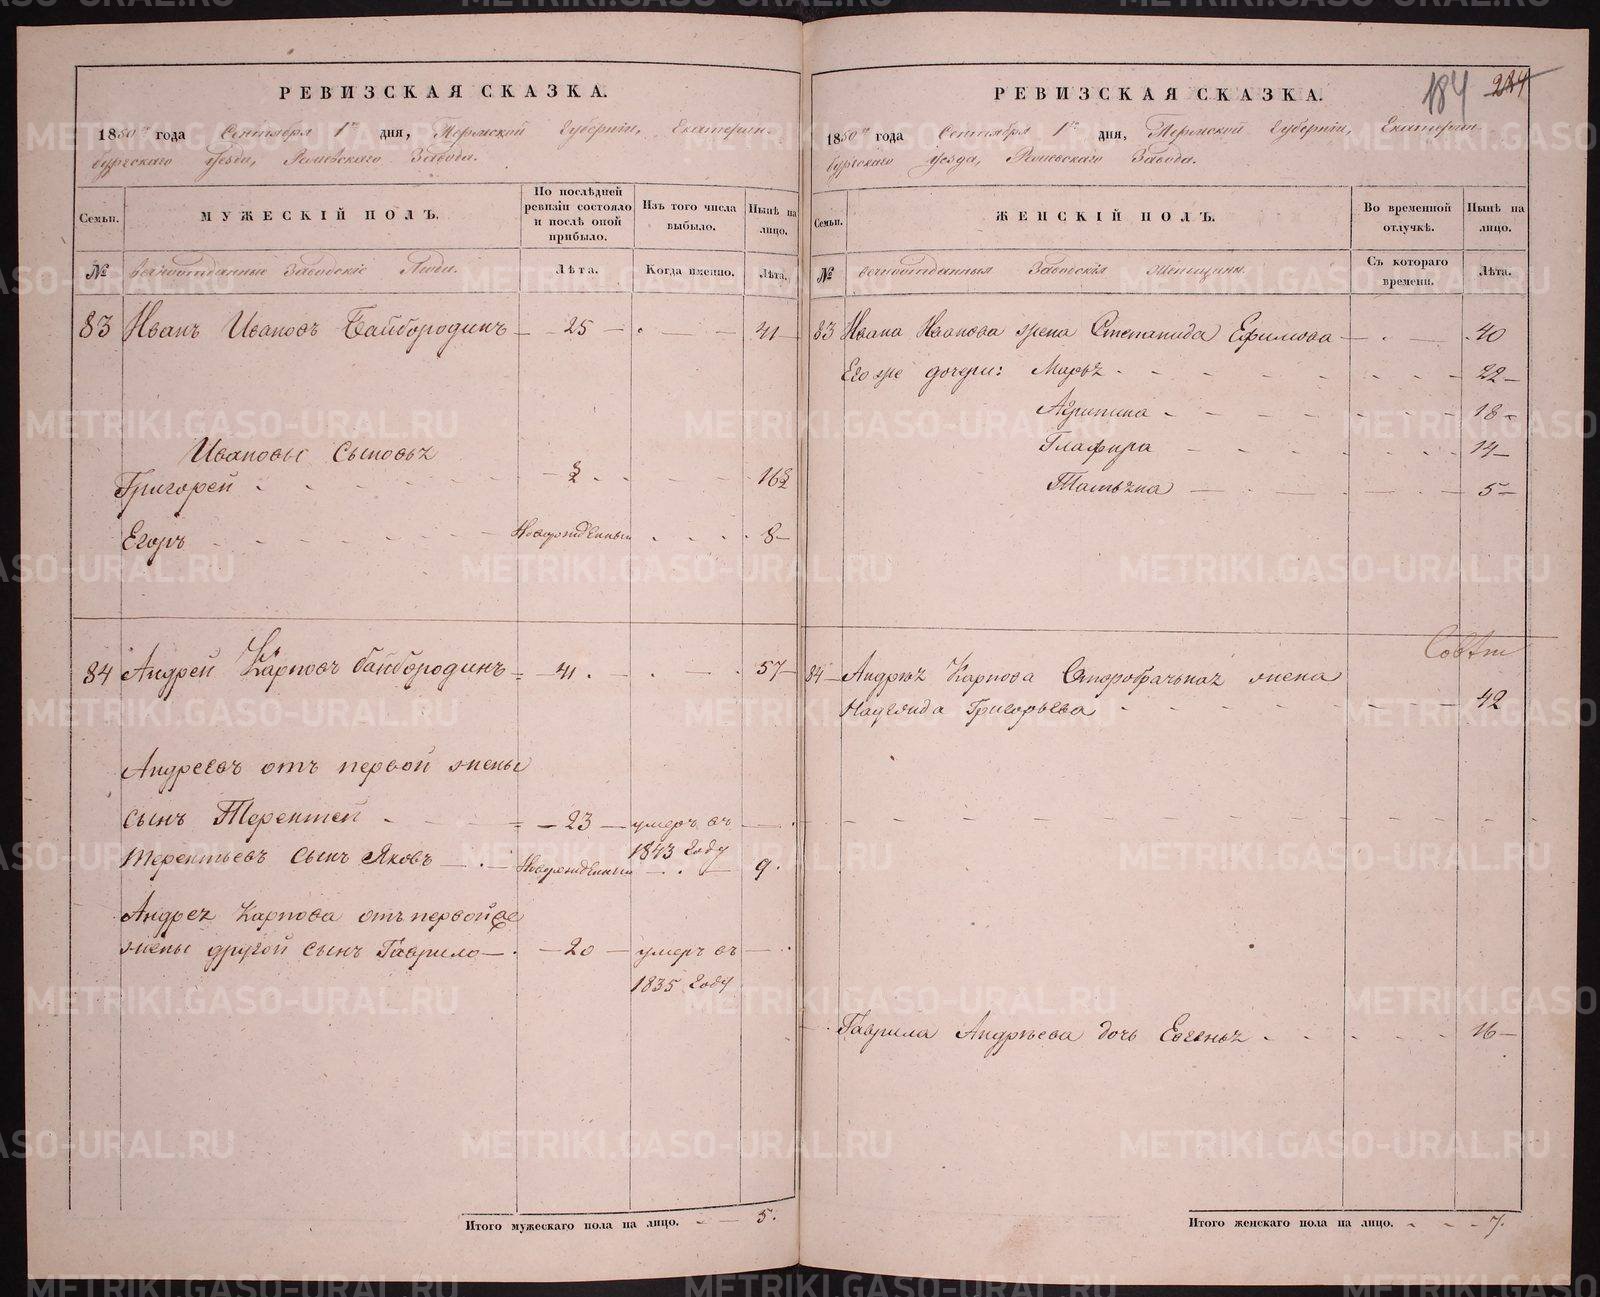 РЕВИЗСКАЯ СКАЗКА.
1850го года Сентября 1го дня, Пермской Губерніи, Екатерин-
бургскаго уезда, Завода.
Семьи.
МУЖЕСКІЙ ПОЛЪ.
По послѣдней ревизіи состояло и послѣ оной прибыло.
Изъ того числа выбыло.
Нынѣ на лицо.
№
вечноотданные Заводскіе Люди.
Лѣта.
Когда именно.
Лѣта.
83 Иванъ Ивановъ Байбородинъ 25 41
Ивановы Сыновья
Григорей ½ 16½
Егоръ Новорожденный 8
84 Андрей Карповъ байбородинъ 41 57
Андреевъ отъ первой жены
сынъ Терентей 23 умеръ въ
1843 году
Терентьевъ сынъ Яковъ Новорожденный 9
Андрея Карпова отъ первой же
жены другой сынъ Гаврило 20 умеръ въ
1835 году
Итого мужескаго пола на лицо. 5.
184 234
РЕВИЗСКАЯ СКАЗКА.
1850го года Сентября 1го дня, Пермской Губерніи, Екатерин-
бургскаго уезда, Завода.
Семьи.
ЖЕНСКІЙ ПОЛЪ.
Во временной отлучкѣ.
Нынѣ на лицо.
№
вечноотданныя Заводскія женщины.
Съ котораго времени.
Лѣта.
83 Ивана Иванова жена Степанида Ефимова 40
Его же дочери: Марья 22
Агрипина 18
Глафира 14
Татьяна 5
84 Андрея Карпова жена
Надежда Григорьева 42
Гаврила Андреева дочь Евгенья 16
Итого женскаго пола на лицо. 7.
METRIKI.GASO-URAL.RU